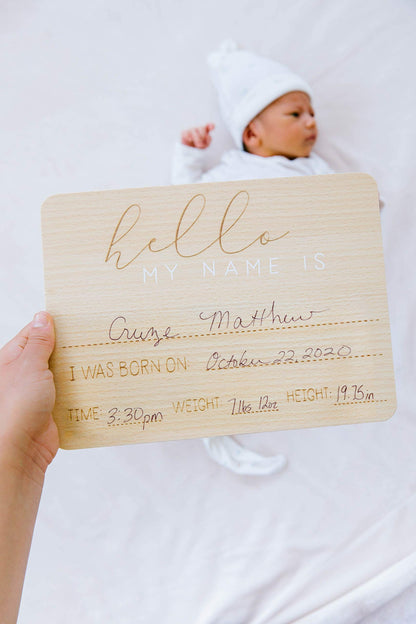 hello
MY NAME IS
Cruze Matthew
I WAS BORN ON: October 22, 2020
TIME: 3:30pm WEIGHT: 7lbs. 12oz HEIGHT: 19.75in